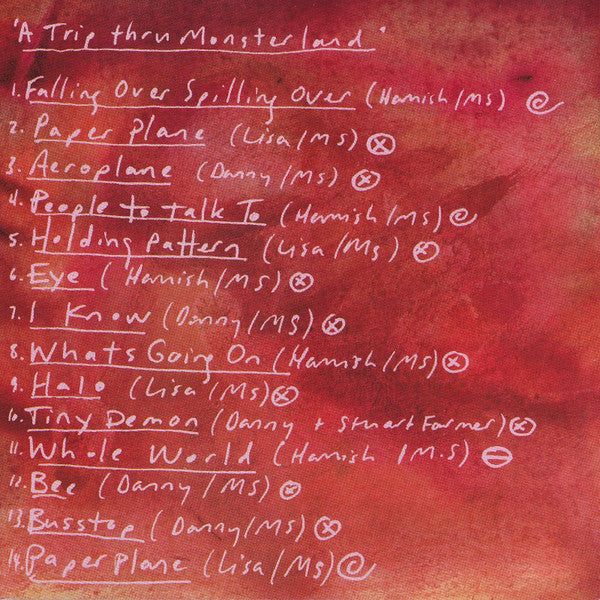 'A Trip thru Monsterland'
1. Falling Over Spilling Over (Hamish/MS)
2. Paper Plane (Lisa/MS)
3. Aeroplane (Danny/MS)
4. People to talk To (Hamish/MS)
5. Holding Pattern (Lisa/Ms)
6. Eye (Hamish/MS)
7. I Know (Danny/MS)
8. Whats Going On (Hamish/MS)
9. Halo (Lisa/MS)
10. Tiny Demon (Danny + Stuart Farmer)
11. Whole World (Hamish/M.S)
12. Bee (Danny/MS)
13. Busstop (Danny/MS)
14. Paper Plane (Lisa/Ms)